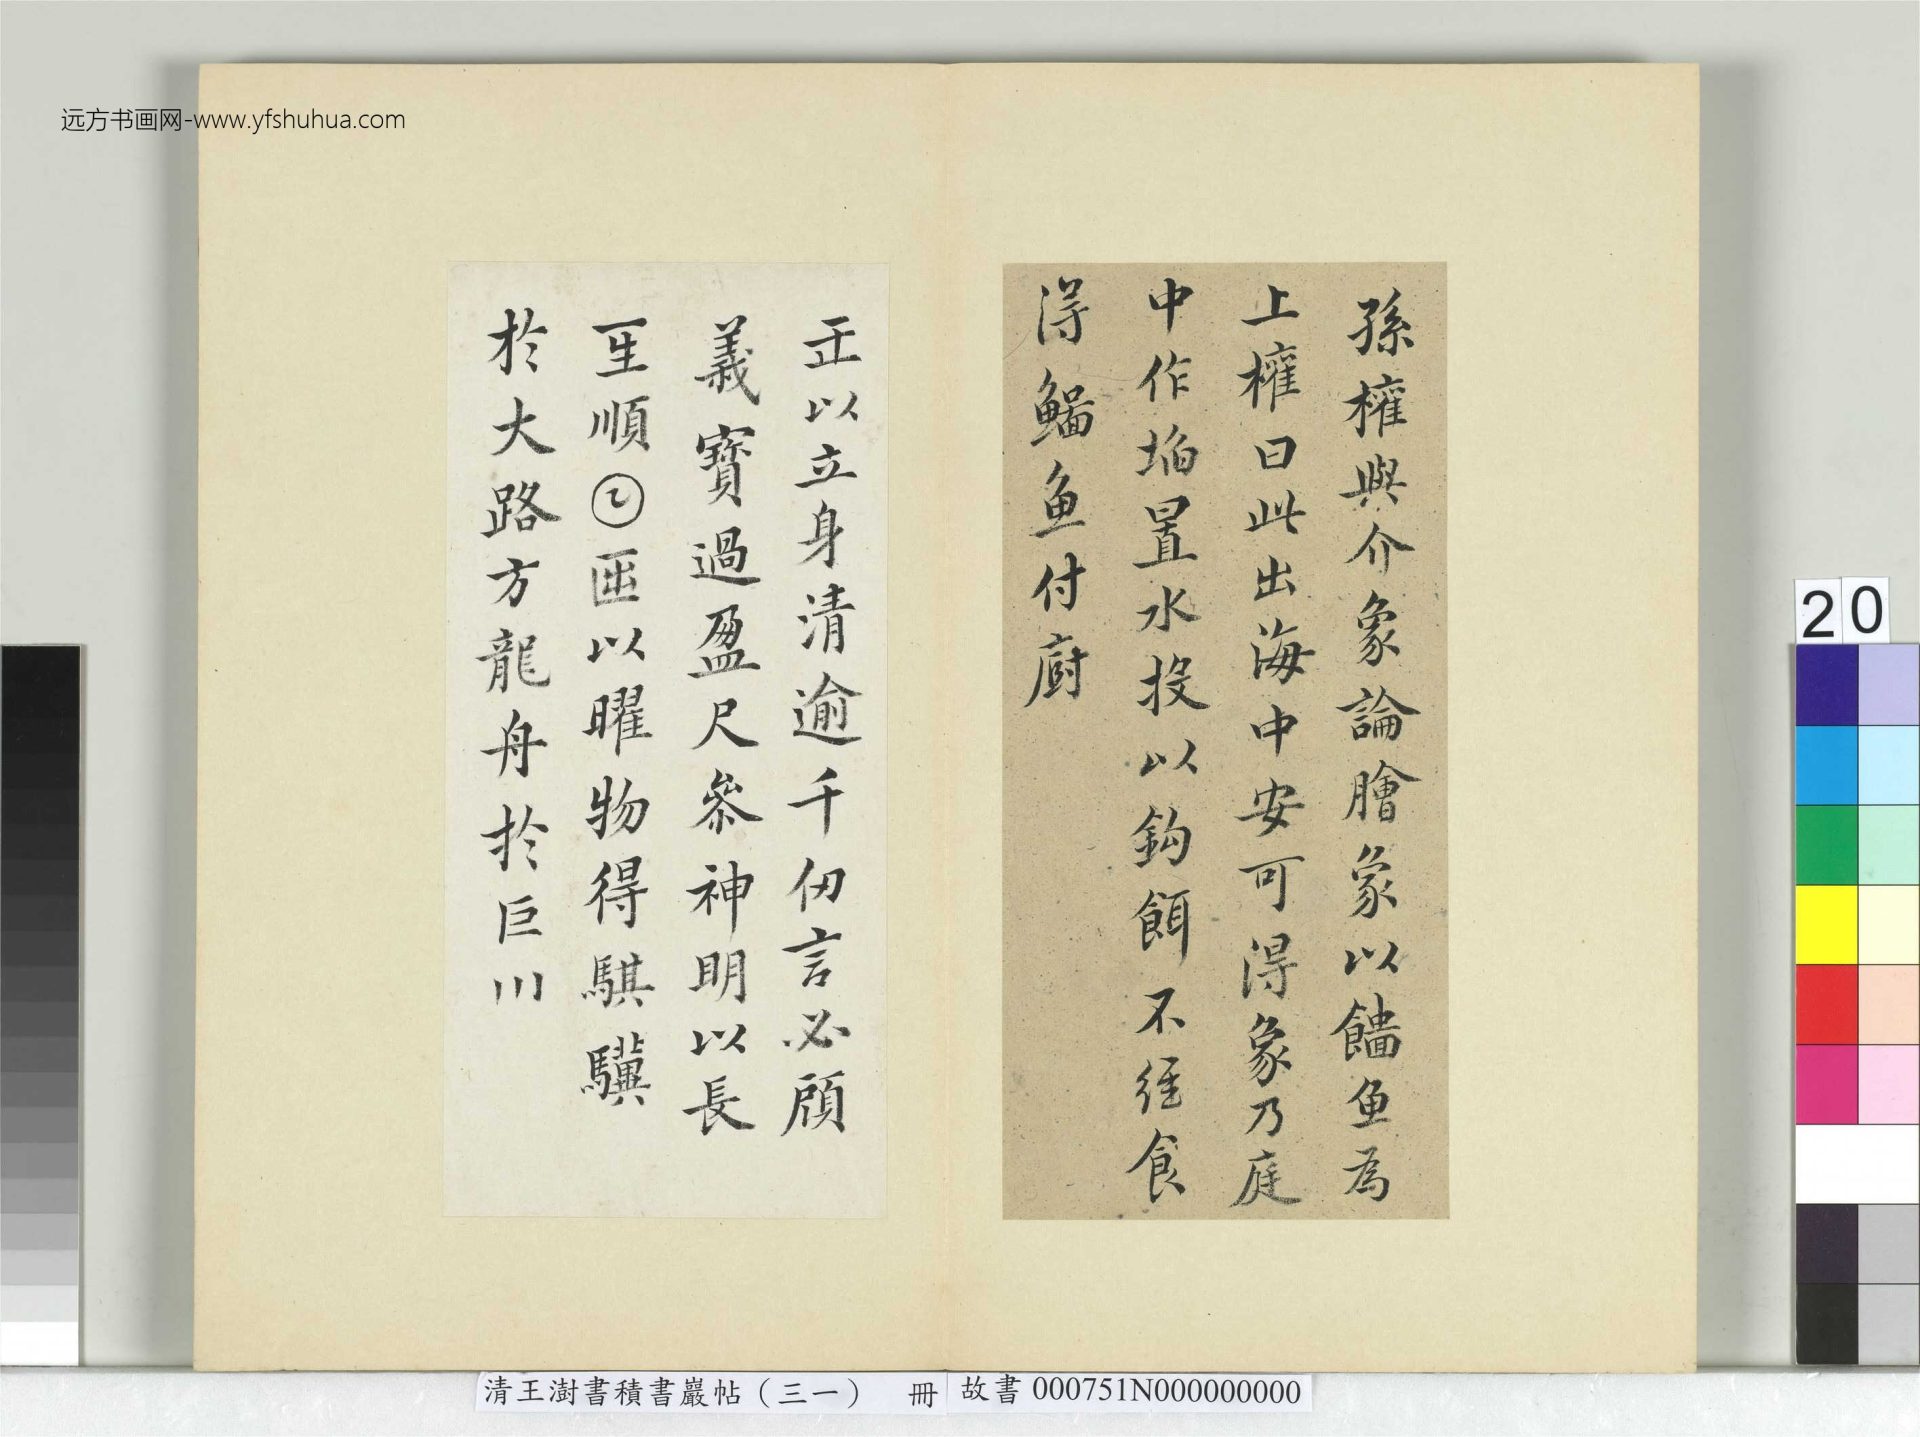 远方书画网-www.yfshuhua.com
孫權與介象論膾象以鯔鱼為
上權曰此出海中安可得象乃庭
中作埳置水投以鈎餌不經食
得鯔鱼付廚
正以立身清逾千仞言必顧
義寶過盈尺參神明以長
生順匝以曜物得騏驥
於大路方龍舟於巨川
20
清王澍書積書巖帖（三一） 冊 故書 000751N000000000